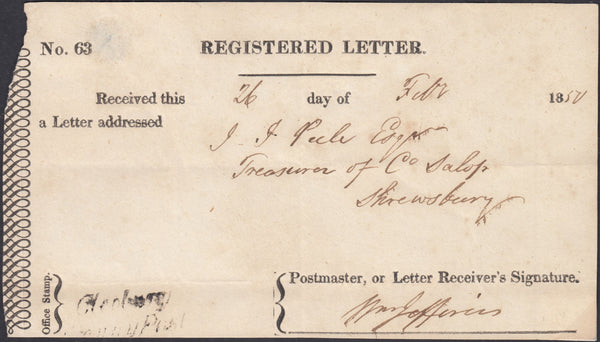 No. 63 REGISTERED LETTER.
Received this 26 day of Feb 1850
a Letter addressed
J. J. Peele Esqre
Treasurer of Co Salop
Shrewsbury
Office Stamp.
Cleobury
Penny Post
Postmaster, or Letter Receiver's Signature.
Wm Jefferies